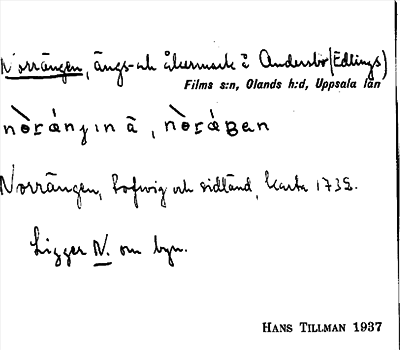 Norrängen, ängs- och åkermark i Andersbo (Edlings)
Films s:n, Olands h:d, Uppsala län
nòráŋɪn ä, nòráŋen
Norrängen, tofwig och sidländ, Karta 1735.
Ligger N. om byn.
HANS TILLMAN 1937